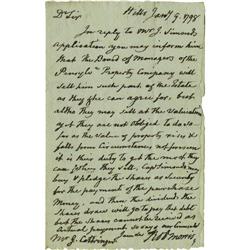 Dr Sir Hills Jany 9. 1798
In reply to Mr J. Simonds
application you may inform him
that the Board of Managers of
the Pennsylva Property Company will
sell him such part of the Estate
as they can agree for, but
altho they may sell at the Valuation
yet they are not Obliged to do so
for as the value of property rises &
falls from Circumstances
it is their duty to get the most they
can when they sell, Capt Simonds may
buy & pledge the Shares as Security
for the payment of the purchase
Money, and then the dividends the
Shares draw will go to pay the debt
but the Shares cannot be received as
actual payment so says
Mr G. Robt Morris